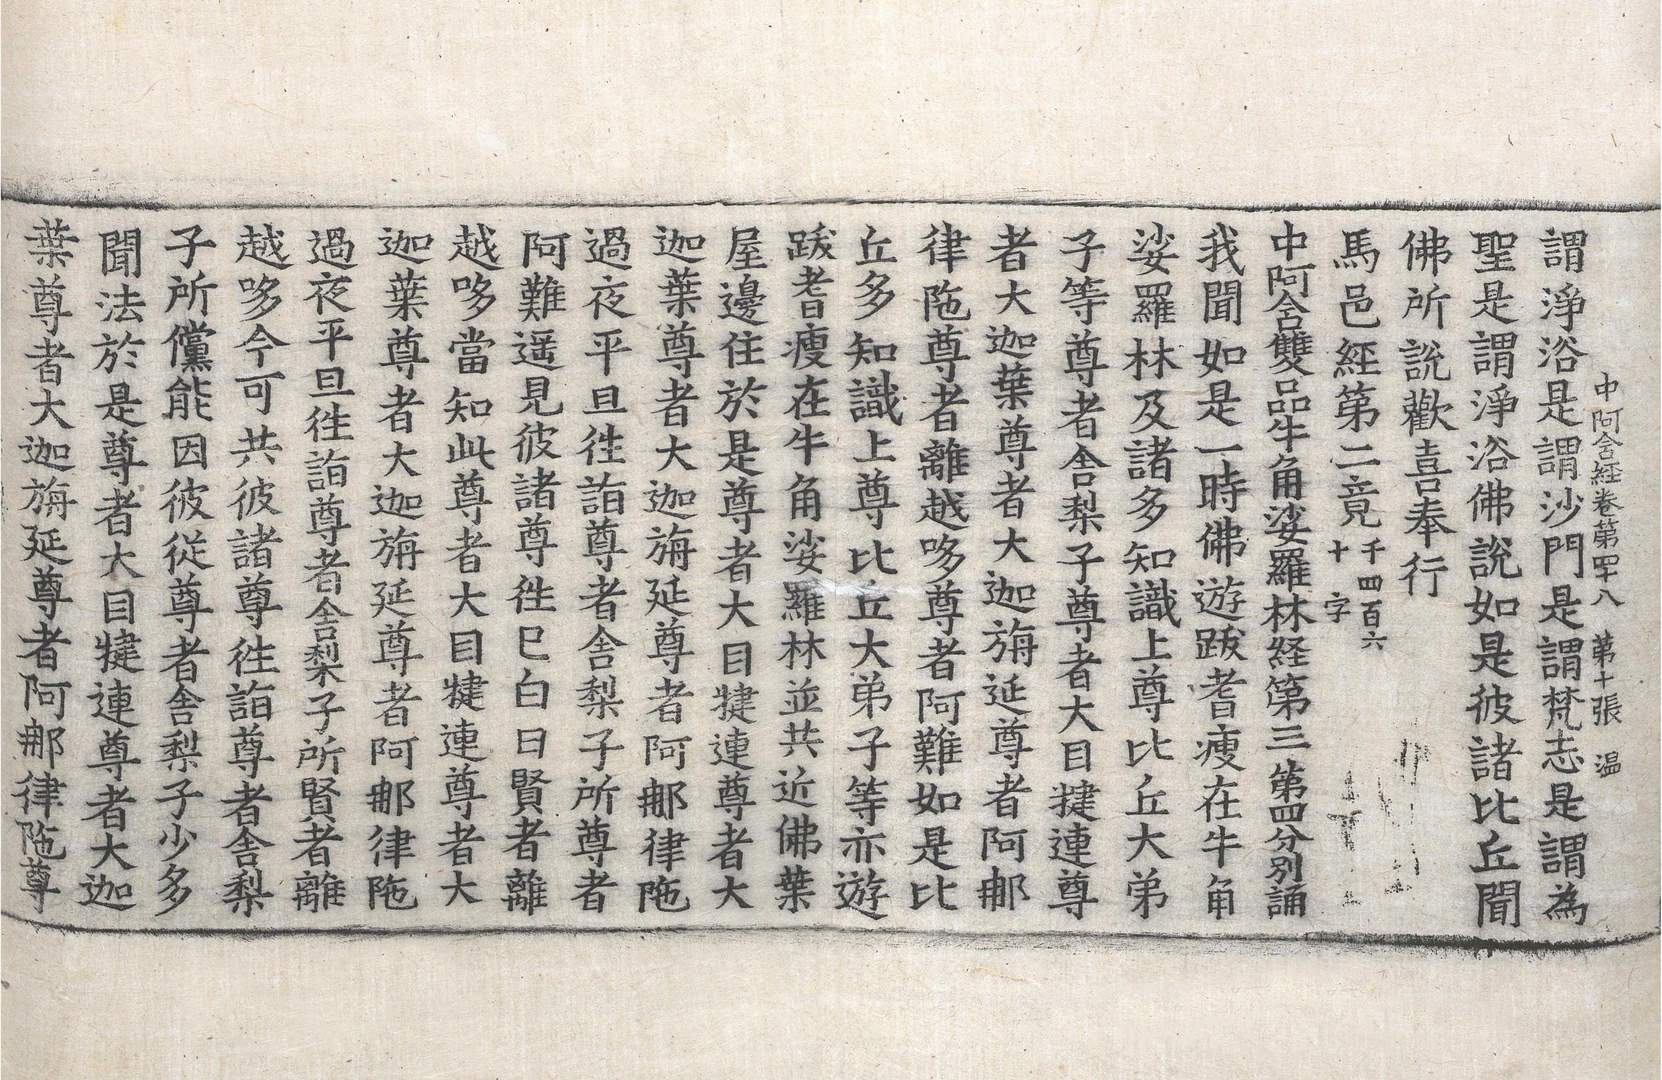 中阿含経卷第四十八　第十張　温
謂淨浴是謂沙門是謂梵志是謂為
聖是謂淨浴佛說如是彼諸比丘聞
佛所說歡喜奉行
馬邑經第二竟千四百六十字
中阿含雙品牛角娑羅林経第三第四分別誦
我聞如是一時佛遊跋耆瘦在牛角
娑羅林及諸多知識上尊比丘大弟
子等尊者舍梨子尊者大目揵連尊
者大迦葉尊者大迦旃延尊者阿那
律陁尊者離越哆尊者阿難如是比
丘多知識上尊比丘大弟子等亦遊
跋耆瘦在牛角娑羅林並共近佛葉
屋邊住於是尊者大目揵連尊者大
迦葉尊者大迦旃延尊者阿那律陁
過夜平旦往詣尊者舍梨子所尊者
阿難遥見彼諸尊徃已白曰賢者離
越哆當知此尊者大目揵連尊者大
迦葉尊者大迦旃延尊者阿那律陁
過夜平旦徃詣尊者舍梨子所賢者離
越哆今可共彼諸尊徃詣尊者舍梨
子所儻能因彼從尊者舍梨子少多
聞法於是尊者大目揵連尊者大迦
葉尊者大迦旃延尊者阿那律陁尊